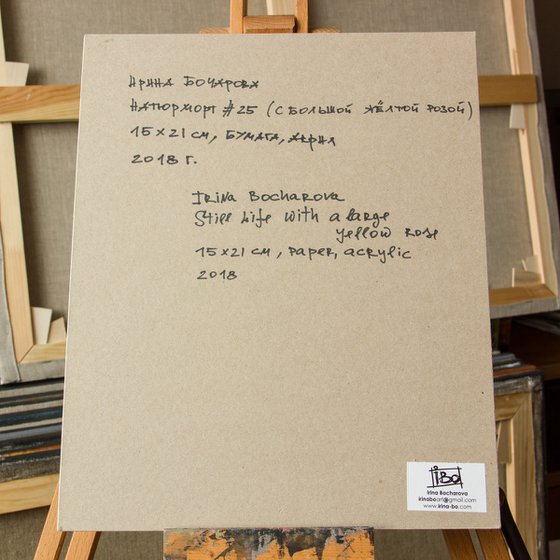 Ирина Бочарова
Натюрморт #25 (с большой жёлтой розой)
15 x 21 см, бумага, акрил
2018 г.
Irina Bocharova
Still life with a large
yellow rose
15 x 21 см, paper, acrylic
2018
iBo
Irina Bocharova
irinaboart@gmail.com
www.irina-bo.com